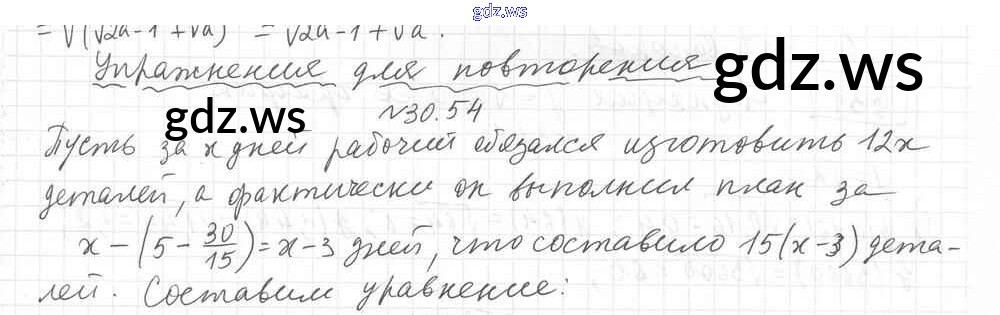 gdz.ws
= √(√2a-1 + √a) = √2a-1 + √a.
Упражнения для повторения
gdz.ws
gdz.ws
№30.54
Пусть за x дней рабочий обязался изготовить 12x
деталей, а фактически он выполнил план за
x - (5 - 30/15) = x - 3 дней, что составило 15(x-3) дета-
лей. Составим уравнение: